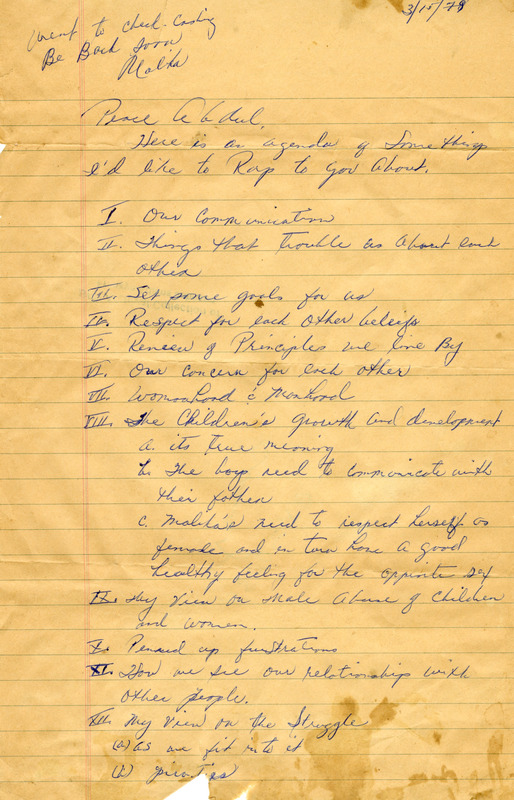 3/10/78
Went to check-cashing
Be Back soon
Malika
Peace Abdul,
Here is an agenda of Some things
I'd like to Rap to you About.
I. Our Communication
II. Things that trouble us About each
other
III. Set some goals for us
IV. Respect for each other beliefs
V. Review of Principles we live By
VI. Our Concern for each other
VII. Womanhood & Manhood
VIII. The Children's growth and development
a. its true meaning
b. The boys need to Communicate with
their father
c. Malika's need to respect herself as
female and in turn have a good
healthy feeling for the opposite sex
IX. My View on Male Abuse of Children
and women.
X. Penned up frustrations
XI. How we see our relationship with
other people.
XII. My View on the Struggle
(a) as we fit into it
(b)